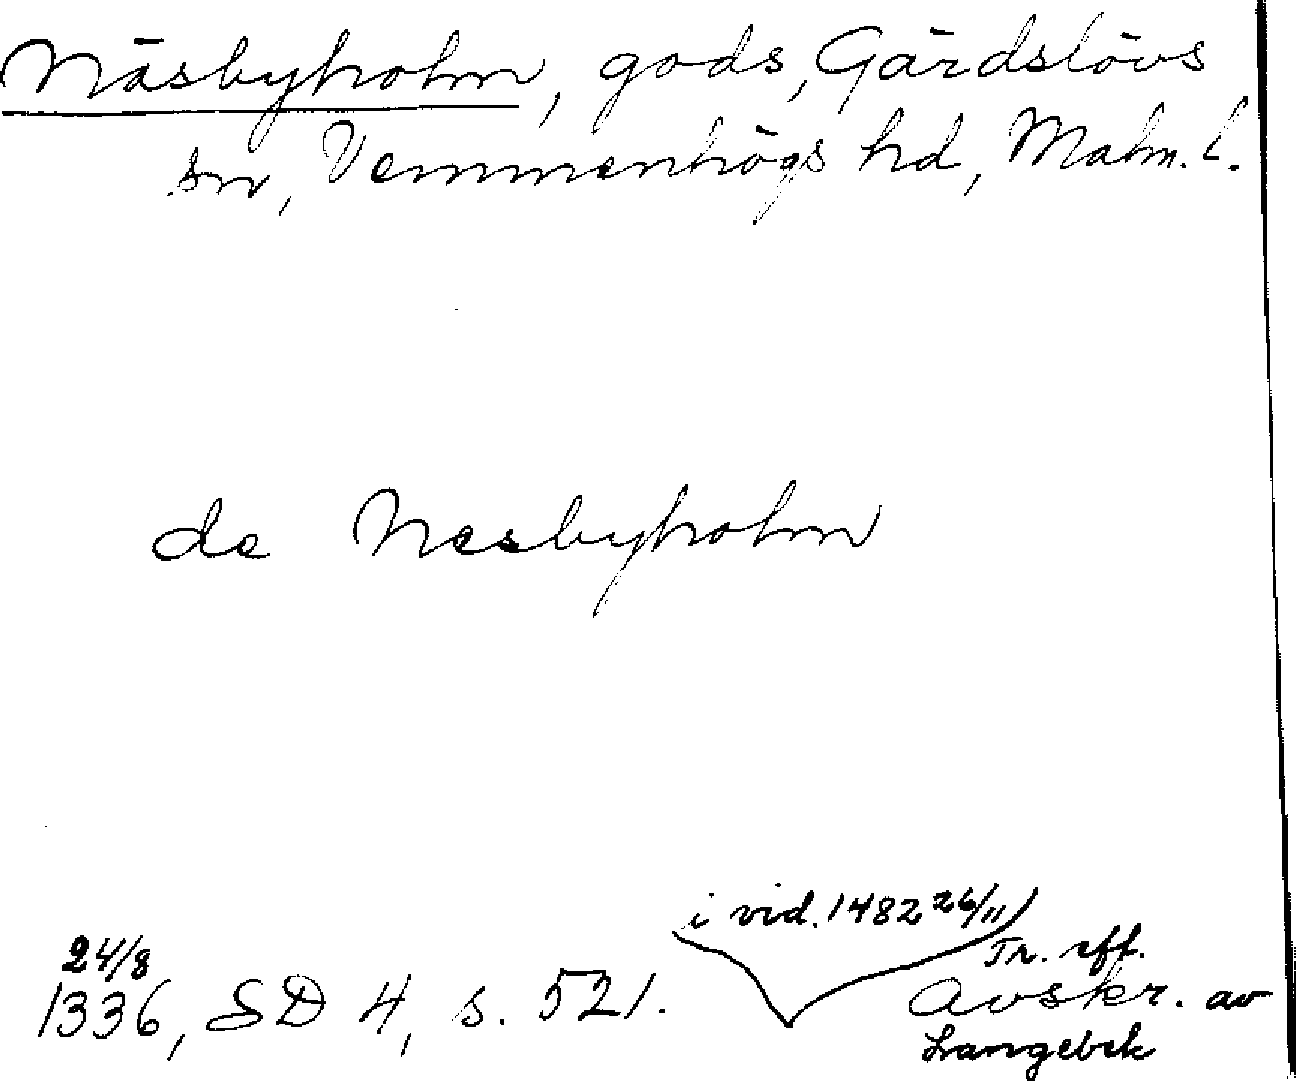 Näsbyholm, gods, Gärdslövs
sn, Vemmenhögs hd, Malm. l.
de Nesbyholm
i vid. 1482 26/11
24/8
1336, SD 4, s. 521.
Tr. eff.
Avskr. av
Langebek